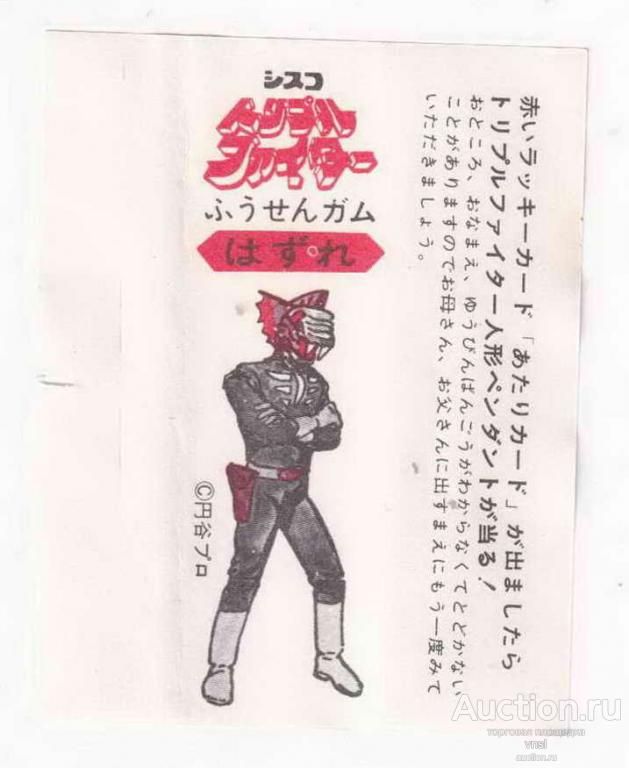 シスコ
トリプル
ファイター
ふうせんガム
はずれ
©円谷プロ
赤いラッキーカード「あたりカード」が出ましたら
トリプルファイター人形ペンダントが当る!
おところ、おなまえ、ゆうびんばんごうがわからなくてとどかない
ことがありますのでお母さん、お父さんに出すまえにもう一度みて
いただきましょう。
Auction.ru
торговая площадка
vnsl
auction.ru